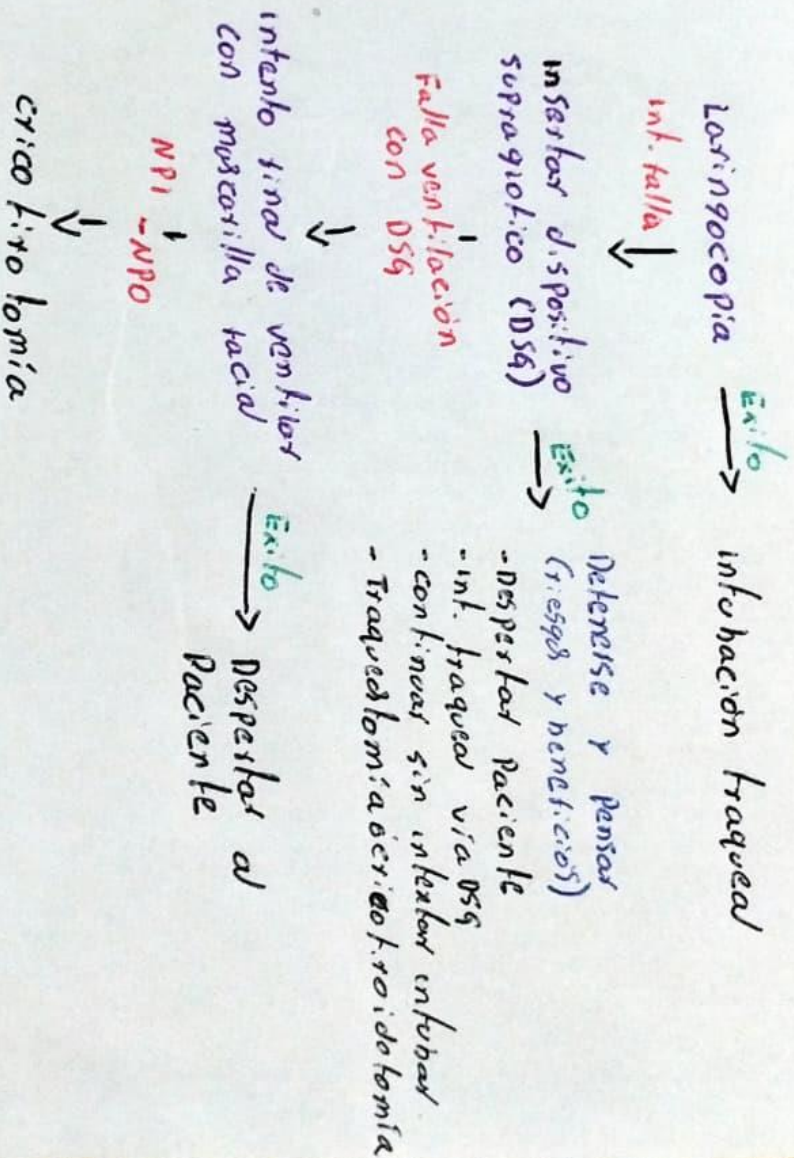 Laringocopia
Éxito
intubación traqueal
int. falla
insertar dispositivo
supraglotico (DSG)
Éxito
Detenerse y pensar
(riesgos y beneficios)
- Despertar Paciente
- int. traqueal vía DSG
- continuar sin intentar intubar.
- Traqueostomía o cricotiroidotomía
Falla ventilación
con DSG
intento final de ventilar
con mascarilla facial
Éxito
Despertar al
Paciente
NPI - NPO
cricotirotomía